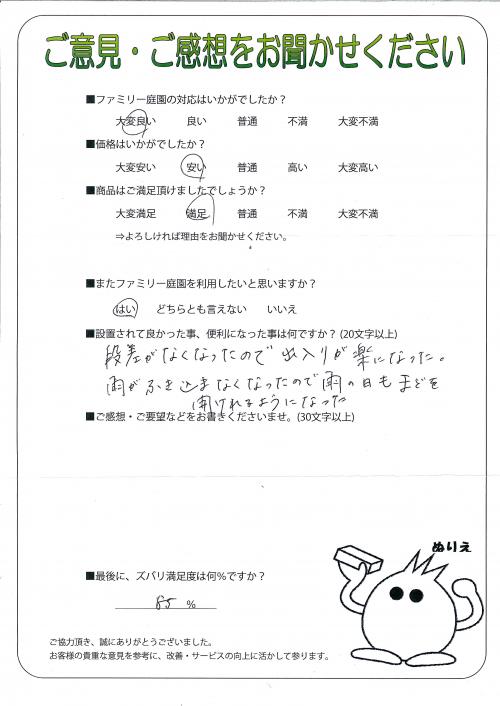 ご意見・ご感想をお聞かせください
■ファミリー庭園の対応はいかがでしたか？
大変良い 良い 普通 不満 大変不満
■価格はいかがでしたか？
大変安い 安い 普通 高い 大変高い
■商品はご満足頂けましたでしょうか？
大変満足 満足 普通 不満 大変不満
⇒よろしければ理由をお聞かせください。
■またファミリー庭園を利用したいと思いますか？
はい どちらとも言えない いいえ
■設置されて良かった事、便利になった事は何ですか？(20文字以上)
段差がなくなったので出入りが楽になった。
雨がふき込まなくなったので雨の日もまどを
開けれるようになった
■ご感想・ご要望などをお書きくださいませ。(30文字以上)
ぬりえ
■最後に、ズバリ満足度は何%ですか？
85 %
ご協力頂き、誠にありがとうございました。
お客様の貴重な意見を参考に、改善・サービスの向上に活かして参ります。